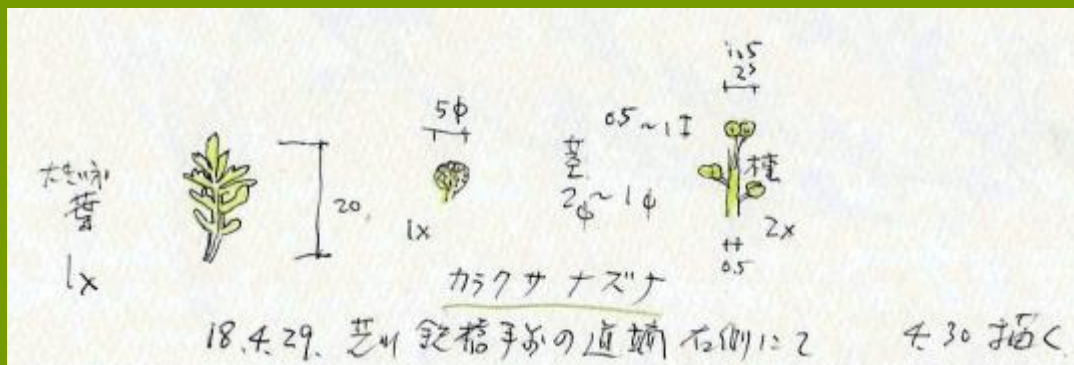 大きい方
葉
1x
20
5φ
1x
茎
2φ~1φ
0.5~1
1.5
2.5
種
2x
0.5
カラクサナズナ
18.4.29. 芝川 鉄橋手前の道端 右側にて
4.30 描く